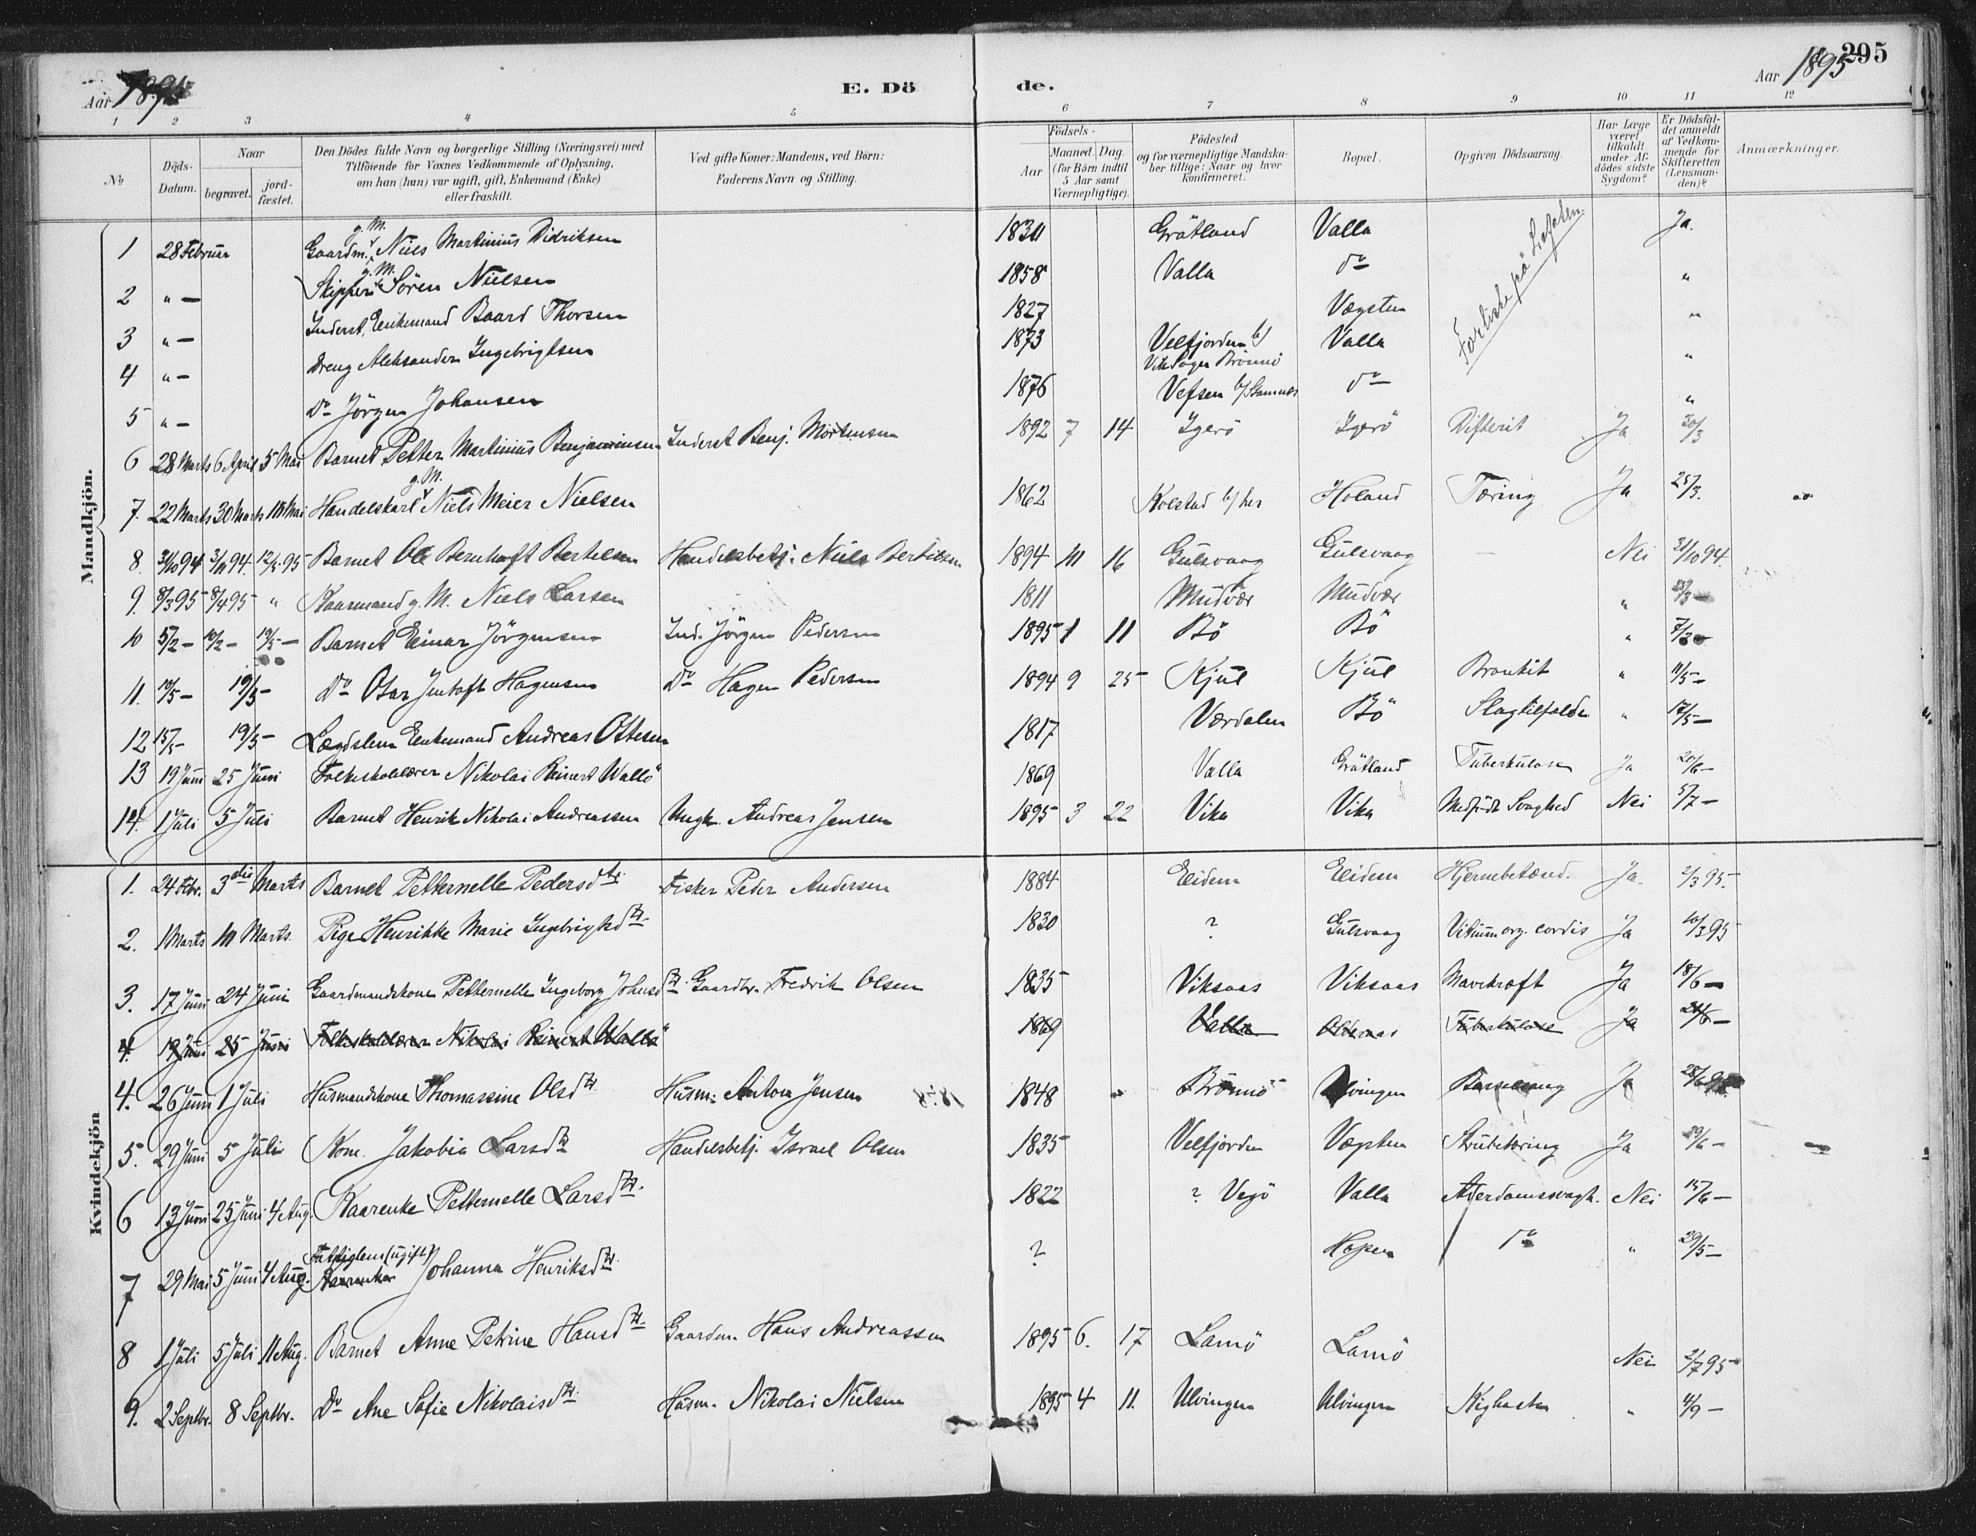 295
Aar 1895
E. Dö de.
Aar 1895
1 2 3 4 5 6 7 8 9 10 11 12
No
Döds-Datum.
Naar
begravet.
jord-fæstet.
Den Dödes fulde Navn og borgerlige Stilling (Næringsvei) med
Tilföiende for Voxnes Vedkommende af Oplysning,
om han (hun) var ugift, gift, Enkemand (Enke)
eller fraskilt.
Ved gifte Koner: Mandens, ved Börn:
Faderens Navn og Stilling.
Födsels-
Aar
Maaned. Dag
(for Börn indtil
5 Aar samt
Værnepligtige).
Födested
og for værnepligtige Mandska-
ber tillige: Naar og hvor
konfirmeret.
Bopæl.
Opgiven Dödsaarsag.
Har Læge
været
tilkaldt
under Af-
dödes sidste
Sygdom?
Er Dödsfal-
det anmeldt
af Vedkom-
mende for
Skifteretten
(Lensman-
den)?
Anmærkninger.
Mandkjön.
1 28 Februar Gaardm. g. M. Niels Martinius Didriksen 1834 Gråtland Valla Forliste på Ja.
2 " — Skipper g. M. Sören Nielsen 1858 Valla do "
3 " — Inderst, Enkemand Baard Thorsen 1827 Vægsten "
4 " — Dreng Aleksander Ingebrigtsen 1873 Velfjorden Valla "
Vik Sogn Brönnö
5 " — Do Jörgen Johansen 1876 Vefsen do "
6 28 Marts 6 April 5 Mai Barnet Petter Martinius Benjaminsen Inderst Benj. Mortensen 1892 7 14 Igerö Igerö Difterit Ja 30/3
7. 22 Marts 30 Marts Mai Handelskarl g. M. Niels Meier Nielsen 1862 Kolstad Holand Tæring Ja 25/3.
8. 31/10 94 3/11 94. 12/5 95 Barnet Ole Bernhoft Bertelsen Handelsbetj. Niels Bertelsen 1894 16 Gulsvaag Gulsvaag — Nei 31/10 94.
9. 8/3 95 8/4 95 " Kaarmand g. M. Niels Larsen 1811 Mudvær Mudvær "
10 5/2 — 10/2 — 19/5 — Barnet Einar Jörgensen Ind. Jörgen Pedersen 1895 1 11 Bö Bö " 7/2
11. 10/5 — 19/5 — Do Jentoft Hagensen Do Hagen Pedersen 1894 9 25 Kjul Kjul Bronkit " 11/5 —
12 15/5 — 19/5 — Lægdslem Enkemand Andreas Ottesen 1817 Værdalen Bö Slagtilfælde " 17/5 —
13 19 Juni 25 Juni Folkeskolelærer Nikolai Reinert Wallö 1869 Valla Gråtland Tuberkulose Ja 20/6 —
14. 1 Juli 5 Juli Barnet Henrik Nikolai Andreassen Ungk. Andreas Jensen 1895 3 22 Vika Vika Medfödt Svaghed Nei 5/7 —
Kvindekjön
1. 24 Febr. 3die Marts Barnet Petternelle Pedersdtr. Fisker Peder Andersen 1884 Eidem Eidem Hjernebetænd. Ja. 2/3 95.
2. 1 Marts Marts. Pige Henrikke Marie Ingebrigtsdtr 1830 ? Gulsvaag Vitium org. cordis Ja 10/3 95
3. 17 Juni 24 Juni Gaardmandskone Petternelle Ingeborg Johnsdtr. Gaardbr. Fredrik Olsen 1835 Viksaas Viksaas Mavekræft Ja 18/6 —
4. 19 Juni 25 Juni Folkeskolelærer Nikolai Reinert Wallö 1869 Valla Tuberkulose Ja 20/6 —
4. 26 Juni 1 Juli Husmandskone Thomassine Olsdtr Husm: Anton Jensen 1848 Brönnö Ulvingen Barselseng Ja 28/6
5. 29 Juni 5 Juli Kone Jakobia Larsdtr Handelsbetj. Israel Olsen 1835 Velfjorden Vægsten Strubetæring Ja 29/6 —
6 13 Juni 25 Juni 4 Aug. Kaarenke Petternelle Larsdtr. 1822 ? Vegö Valla Alderdomssvagh. Nei 15/6 —
7 29 Mai 5 Juni 4 Aug. Fattiglem (ugift) Johanna Henriksdtr. ? Hopen do " 29/5 —
8 1 Juli 5 Juli 11 Aug. Barnet Anne Petrine Hansdtr Gaardm. Hans Andreassen 1895 6. 17 Lamö Lamö Nei 2/7 95
9. 2 Septbr. 8 Septbr. Do Ane Sofie Nikolaisdtr. Husm. Nikolai Nielsen 1895 4 11. Ulvingen Ulvingen Kighoste " 4/9 —